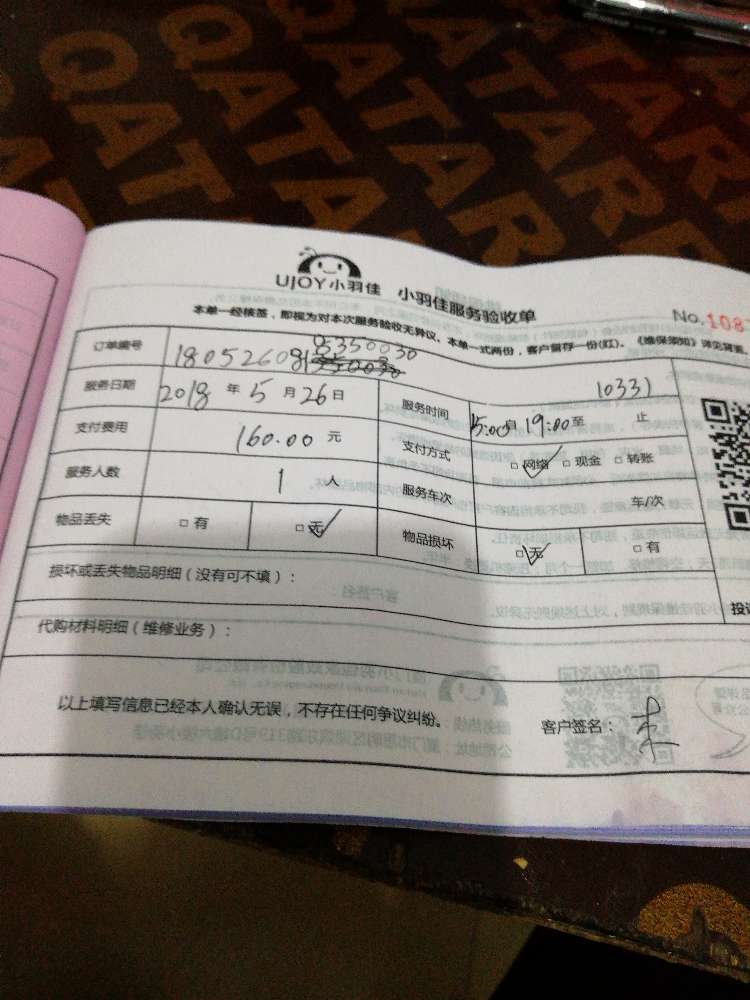 QATAR QATAR
QATAR
QATARE
UJOY小羽佳 小羽佳服务验收单
No.108
本单一经核签,即视为对本次服务验收无异议、本单一式两份,客户留存一份(红)。《维保须知》详见背面
订单编号 18052608135350030
服务日期 2018 年 5 月 26 日 服务时间 15:00 19:00 至 止
10331
支付费用 160.00 元 支付方式 □网络 □现金 □转账
服务人数 1 人 服务车次 车/次
物品丢失 □有 □无 物品损坏 □无 □有
损坏或丢失物品明细(没有可不填):
代购材料明细(维修业务):
以上填写信息已经本人确认无误,不存在任何争议纠纷。 客户签名: